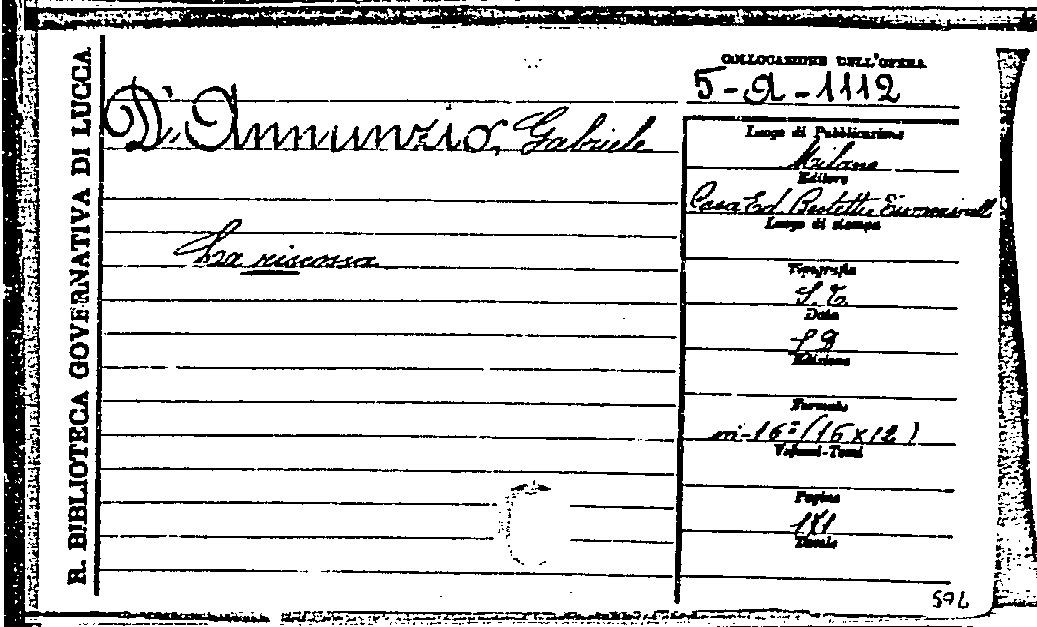 R. BIBLIOTECA GOVERNATIVA DI LUCCA
D'Annunzio, Gabriele
La riscossa
COLLOCAZIONE DELL'OPERA
5-A-1112
Luogo di Pubblicazione
Milano
Editore
Casa Ed. Bestetti e Tumminelli
Luogo di stampa
Tipografia
S. T.
Data
Edizione
Formato
in-16° (16 x 12)
Volumi-Tomi
Pagine
Tavole